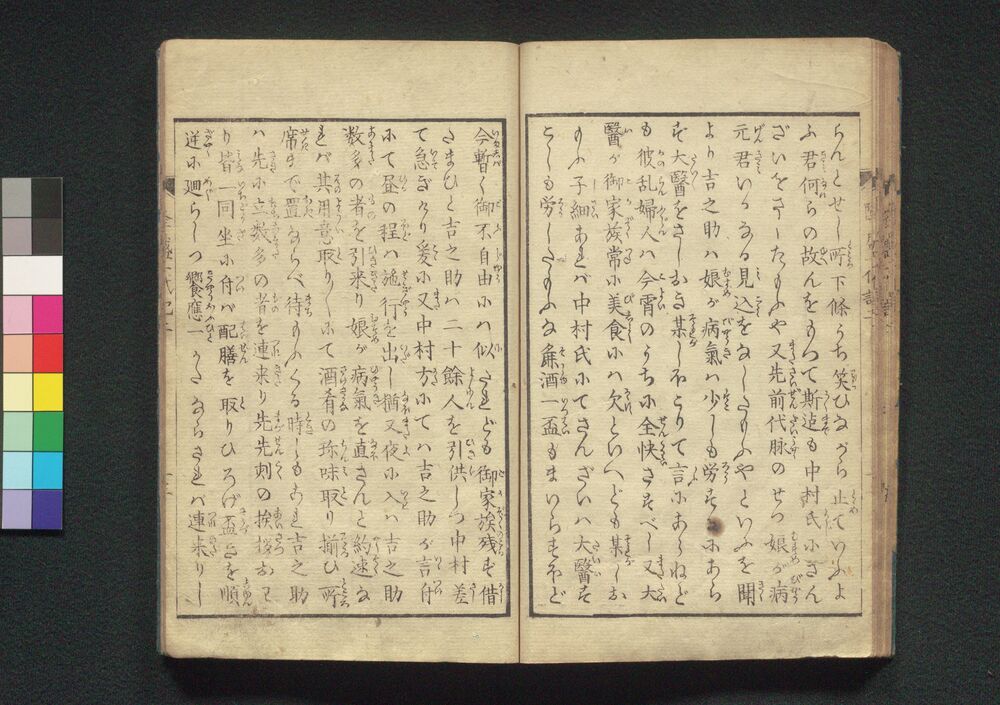 らんとせし所下條うち笑ひながら止ていふよ
ふ君何らの故んをもつて斯迄も中村氏にさん
ざいをさしたもふや又先前代脉のせつ娘が病
元君いかなる見込をなしたもふやといふを聞
より吉之助ハ娘が病氣ハ少しも労するにあら
ず大醫をさしおき某しおとりて言にあらねど
も彼乱婦人ハ今霄のうちに全快さすべし又大
醫が御家族常に美食にハ欠といへども某しお
もふ子細あれバ中村氏にてさんざいハ大醫を
とくしも労したもふな麁酒一盃もまいらすほど
今暫く御不自由にハ似たれども御家族残らず借
たまひと吉之助ハ二十餘人を引供しつ中村差
て急ぎけり爰に又中村方にてハ吉之助が言付
にて昼の程ハ施行を出し猶又夜に入ハ吉之助
数多の者を引来り娘が病氣を直さんと約速な
れバ其用意取りしにて酒肴の珍味取り揃ひ所
席まで置ならべ待もふくる時しもあれ吉之助
ハ先に立数多の者を連来り先先刻の挨拶おハ
り皆一同坐に付バ配膳を取りひろげ盃さを順
逆に廻らしつ饗應一かたならされバ連来りし